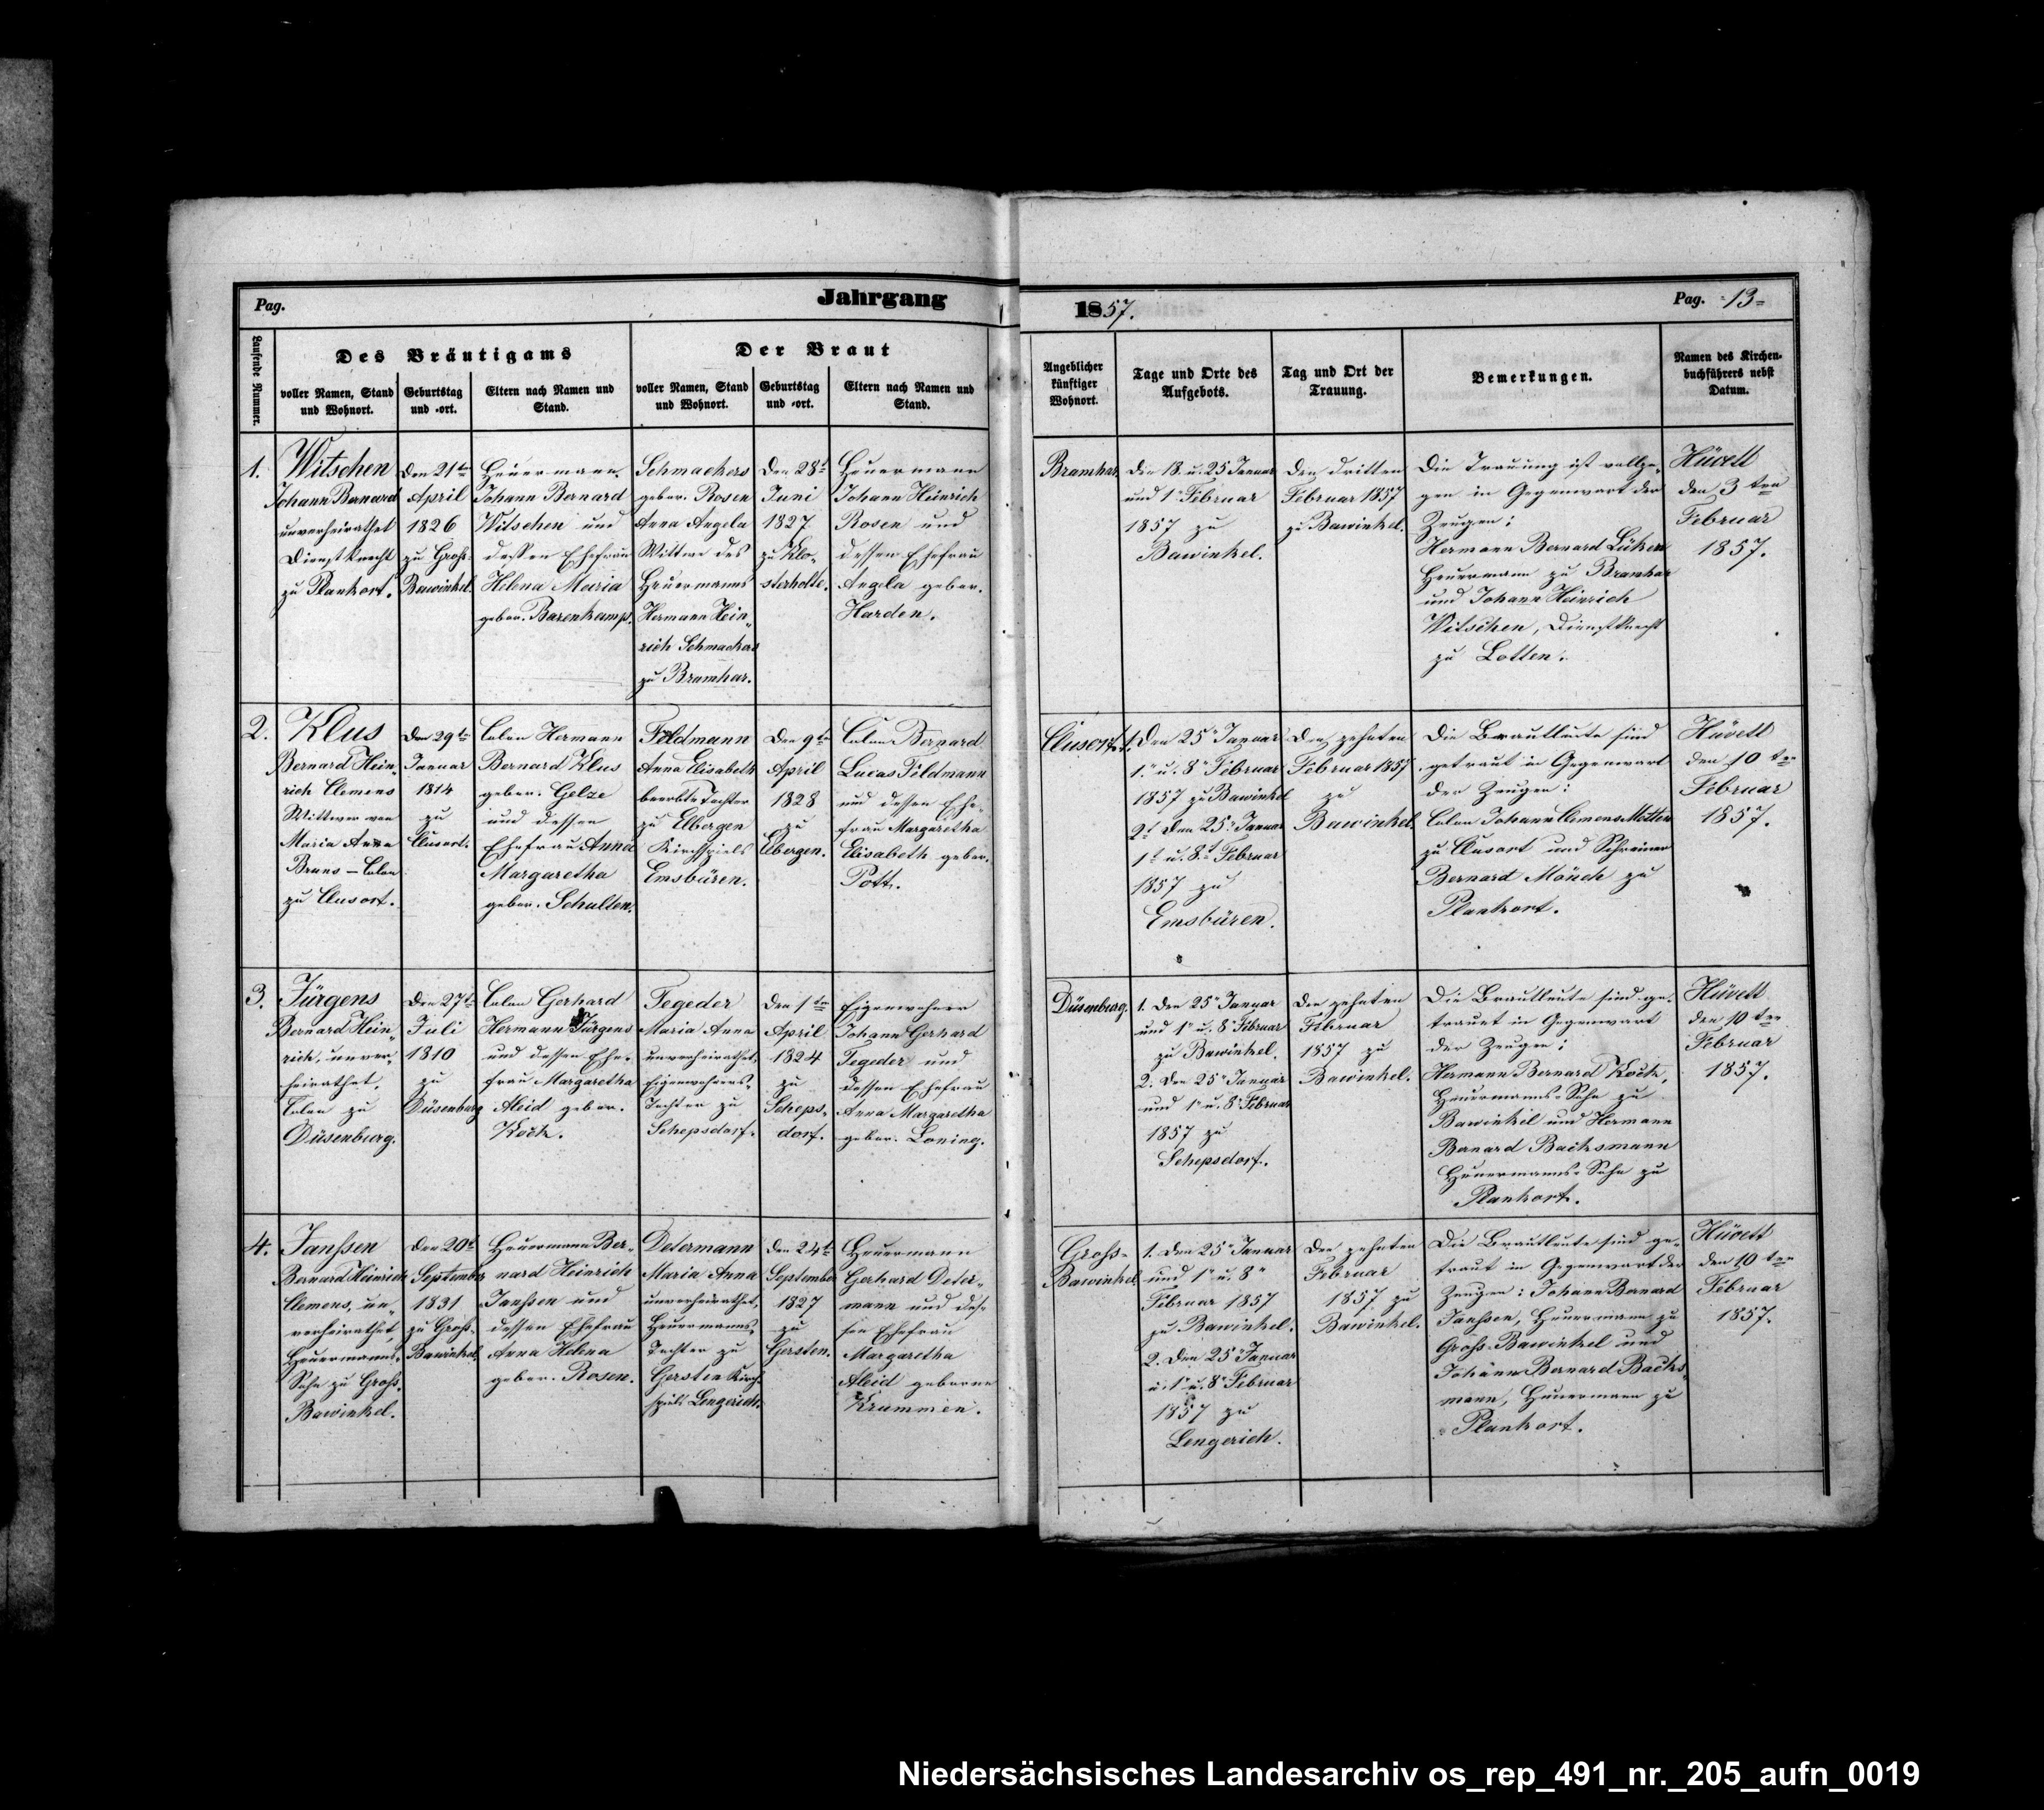 Pag.
Jahrgang
1857.
Pag. -13-
Laufende Nummer.
Des Bräutigams
voller Namen, Stand
und Wohnort.
Geburtstag
und -ort.
Eltern nach Namen und
Stand.
Der Braut
voller Namen, Stand
und Wohnort.
Geburtstag
und -ort.
Eltern nach Namen und
Stand.
Angeblicher
künftiger
Wohnort.
Tage und Orte des
Aufgebots.
Tag und Ort der
Trauung.
Bemerkungen.
Namen des Kirchen-
buchführers nebst
Datum.
1.
Witschen
Johann Bernard
unverheirathet
Dienstknecht
zu Plankort.
Den 21ten
April
1826
zu Groß-
Bawinkel.
Heuermann
Johann Bernard
Witschen und
dessen Ehefrau
Helena Maria
gebor. Barenkamp.
Schmackers
gebor. Rosen
Anna Angela
Wittwe des
Heuermanns
Hermann Hein-
rich Schmackers
zu Bramhar.
Den 28t
Juni
1827
zu Klo-
sterholte.
Heuermann
Johann Heinrich
Rosen und
dessen Ehefrau
Angela gebor.
Harden.
Bramhar.
Den 18. u. 25 Januar
und 1n Februar
1857 zu
Bawinkel.
Den dritten
Februar 1857
zu Bawinkel.
Die Trauung ist vollzo-
gen in Gegenwart der
Zeugen:
Hermann Bernard Lüken
Heuermann zu Bramhar
und Johann Heinrich
Witschen, Dienstknecht
zu Lotten.
Hüvett
den 3ten
Februar
1857.
2.
Klus
Bernard Hein-
rich Clemens
Wittwer von
Maria Anna
Bruns – Colon
zu Clusort.
Den 29ten
Januar
1814
zu
Clusort.
Colon Hermann
Bernard Klus
gebor. Gelze
und dessen
Ehefrau Anna
Margaretha
gebor. Schulten.
Feldmann
Anna Elisabeth
beerbte Tochter
zu Elbergen
Kirchspiels
Emsbüren.
Den 9ten
April
1828
zu
Elbergen.
Colon Bernard
Lucas Feldmann
und dessen Ehe-
frau Margaretha
Elisabeth gebor.
Pott.
Clusort.
1. Den 25n Januar
1n u. 8n Februar
1857 zu Bawinkel
2t Den 25n Januar
1t u. 8t Februar
1857 zu
Emsbüren.
Den zehnten
Februar 1857
zu
Bawinkel.
Die Brautleute sind
getraut in Gegenwart
der Zeugen:
Colon Johann Clemens Motten
zu Clusort und Schreiner
Bernard Mönch zu
Plankort.
Hüvett
den 10ten
Februar
1857.
3.
Jürgens
Bernard Hein-
rich, unver-
heirathet,
Colon zu
Düsenburg.
Den 27t
Juli
1810
zu
Düsenburg
Colon Gerhard
Hermann Jürgens
und dessen Ehe-
frau Margaretha
Aleid gebor.
Kock.
Tegeder
Maria Anna
unverheirathet,
Eigenwohners-
Tochter zu
Schepsdorf.
Den 1ten
April
1824
zu
Scheps-
dorf.
Eigenwohner
Johann Gerhard
Tegeder und
dessen Ehefrau
Anna Margaretha
gebor. Loning.
Düsenburg.
1. Den 25n Januar
und 1n u. 8n Februar
zu Bawinkel.
2. Den 25n Januar
und 1n u. 8n Februar
1857 zu
Schepsdorf.
Den zehnten
Februar
1857 zu
Bawinkel.
Die Brautleute sind ge-
trauet in Gegenwart
der Zeugen:
Hermann Bernard Kock,
Heuermanns-Sohn zu
Bawinkel und Hermann
Bernard Backsmann
Heuermanns-Sohn zu
Plankort.
Hüvett
den 10ten
Februar
1857.
4.
Janßen
Bernard Heinrich
Clemens, un-
verheirathet,
Heuermanns-
Sohn zu Groß-
Bawinkel.
Den 20t
September
1831
zu Groß-
Bawinkel.
Heuermann Ber-
nard Heinrich
Janßen und
dessen Ehefrau
Anna Helena
gebor. Rosen.
Determann
Maria Anna
unverheirathet,
Heuermanns-
Tochter zu
Gersten Kirch-
spiels Lengerich.
Den 24t
September
1827
zu
Gersten.
Heuermann
Gerhard Deter-
mann und des-
sen Ehefrau
Margaretha
Aleid geborne
Krummen.
Groß-
Bawinkel
1. Den 25n Januar
und 1n u. 8n
Februar 1857
zu Bawinkel.
2. Den 25n Januar
u. 1n u. 8n Februar
1857 zu
Lengerich.
Den zehnten
Februar
1857 zu
Bawinkel.
Die Brautleute sind ge-
traut in Gegenwart der
Zeugen: Johann Bernard
Janßen, Heuermann zu
Groß-Bawinkel und
Johann Bernard Backs-
mann, Heuermann zu
Plankort.
Hüvett
den 10ten
Februar
1857.
Niedersächsisches Landesarchiv os_rep_491_nr._205_aufn_0019